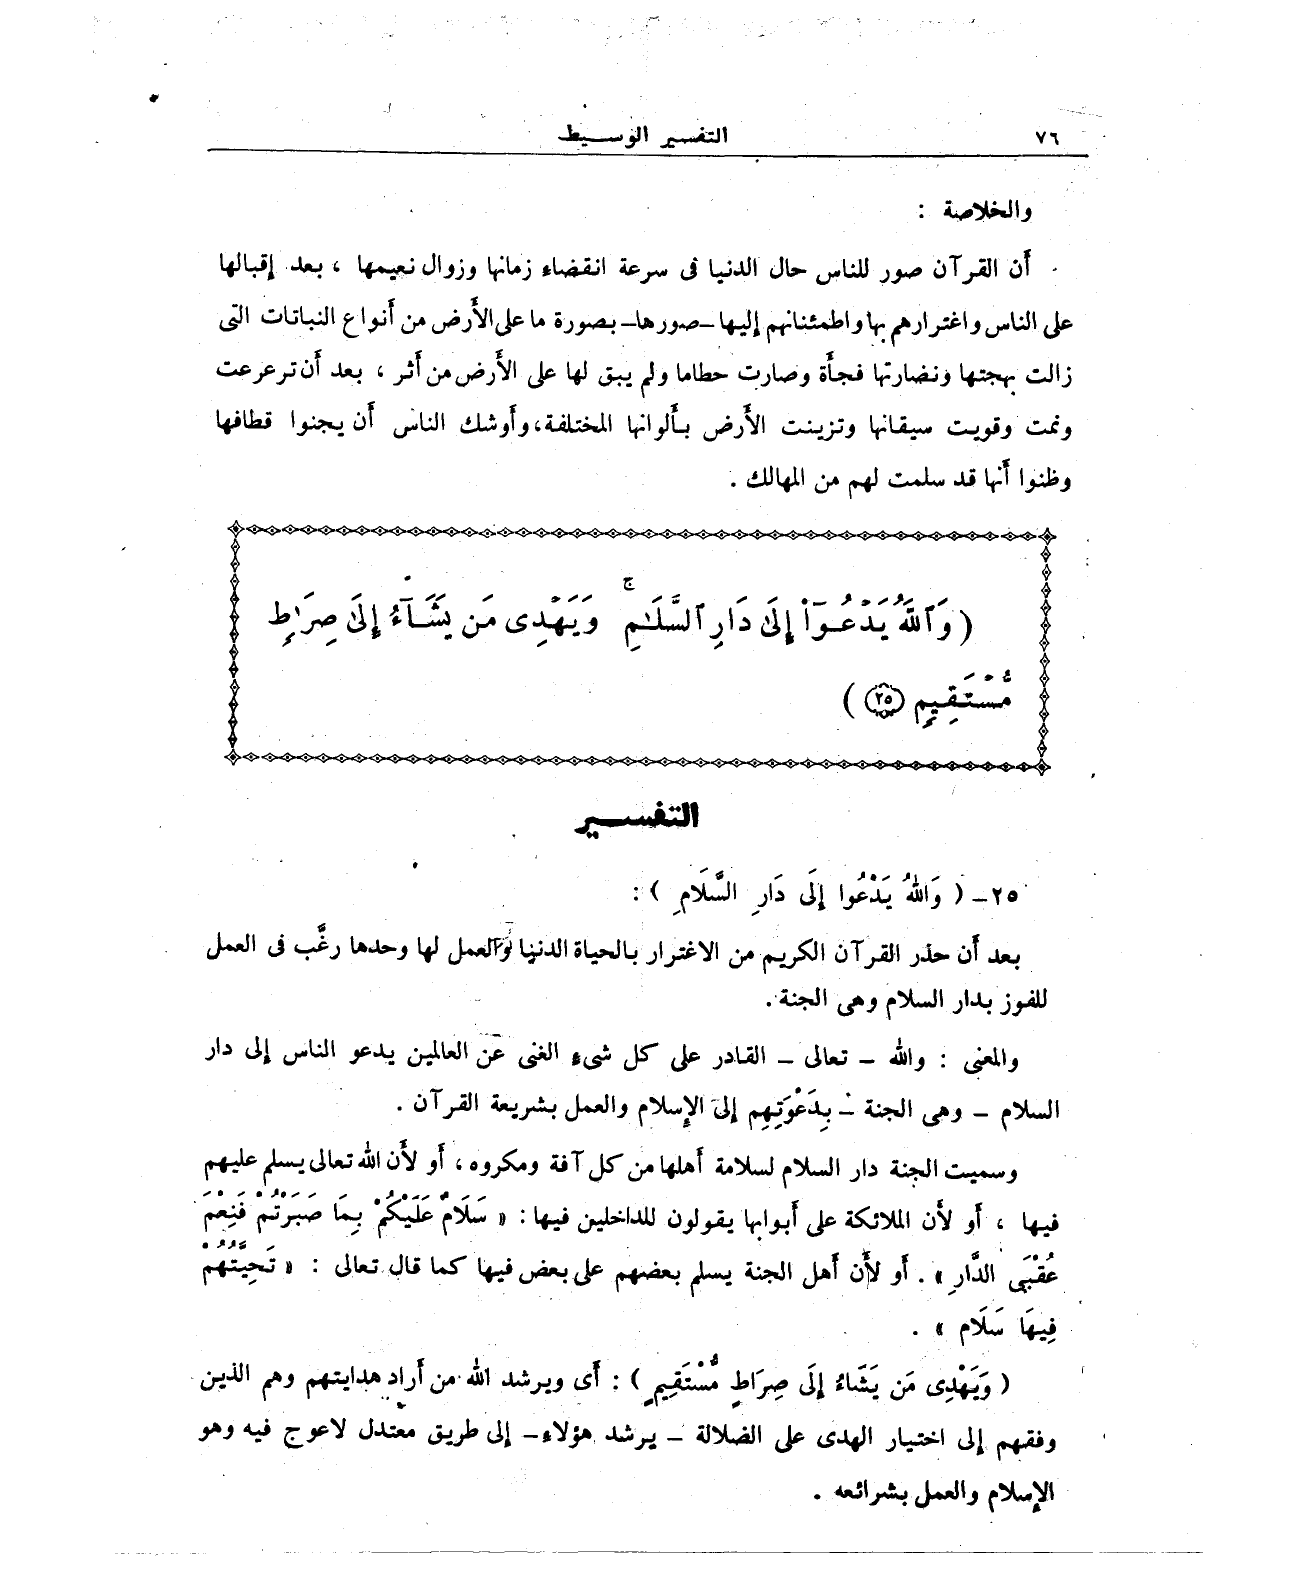 ٧٦
التفسير الوسيط
والخلاصة :
أن القرآن صور للناس حال الدنيا فى سرعة انقضاء زمانها وزوال نعيمها ، بعد إقبالها
على الناس واغترارهم بها واطمئنانهم إليها – صورها – بصورة ما على الأرض من أنواع النباتات التى
زالت بهجتها ونضارتها فجأة وصارت حطاما ولم يبق لها على الأرض من أثر ، بعد أن ترعرعت
ونمت وقويت سيقانها وتزينت الأرض بألوانها المختلفة، وأوشك الناس أن يجنوا قطافها
وظنوا أنها قد سلمت لهم من المهالك .
( وَٱللَّهُ يَدْعُوٓاْ إِلَىٰ دَارِ ٱلسَّلَـٰمِ ۚ وَيَهْدِى مَن يَشَآءُ إِلَىٰ صِرَٰطٍ
مُّسْتَقِيمٍ ٢٥ )
التفسير
٢٥ – ( وَاللهُ يَدْعُوا إِلَى دَارِ السَّلَامِ ) :
بعد أن حذر القرآن الكريم من الاغترار بالحياة الدنيا والعمل لها وحدها رغَّب فى العمل
للفوز بدار السلام وهى الجنة .
والمعنى : والله – تعالى – القادر على كل شىء الغنى عن العالمين يدعو الناس إلى دار
السلام – وهى الجنة – بِدَعْوَتِهِم إلى الإسلام والعمل بشريعة القرآن .
وسميت الجنة دار السلام لسلامة أهلها من كل آفة ومكروه ، أو لأن الله تعالى يسلم عليهم
فيها ، أو لأن الملائكة على أبوابها يقولون للداخلين فيها : « سَلَامٌ عَلَيْكُمْ بِمَا صَبَرْتُمْ فَنِعْمَ
عُقْبَى الدَّارِ » . أو لأن أهل الجنة يسلم بعضهم على بعض فيها كما قال تعالى : « تَحِيَّتُهُمْ
فِيهَا سَلَام » .
( وَيَهْدِى مَن يَشَاءُ إِلَى صِرَاطٍ مُّسْتَقِيمٍ ) : أى ويرشد الله من أراد هدايتهم وهم الذين
وفقهم إلى اختيار الهدى على الضلالة – يرشد هؤلاء – إلى طريق معتدل لاعوج فيه وهو
الإسلام والعمل بشرائعه .